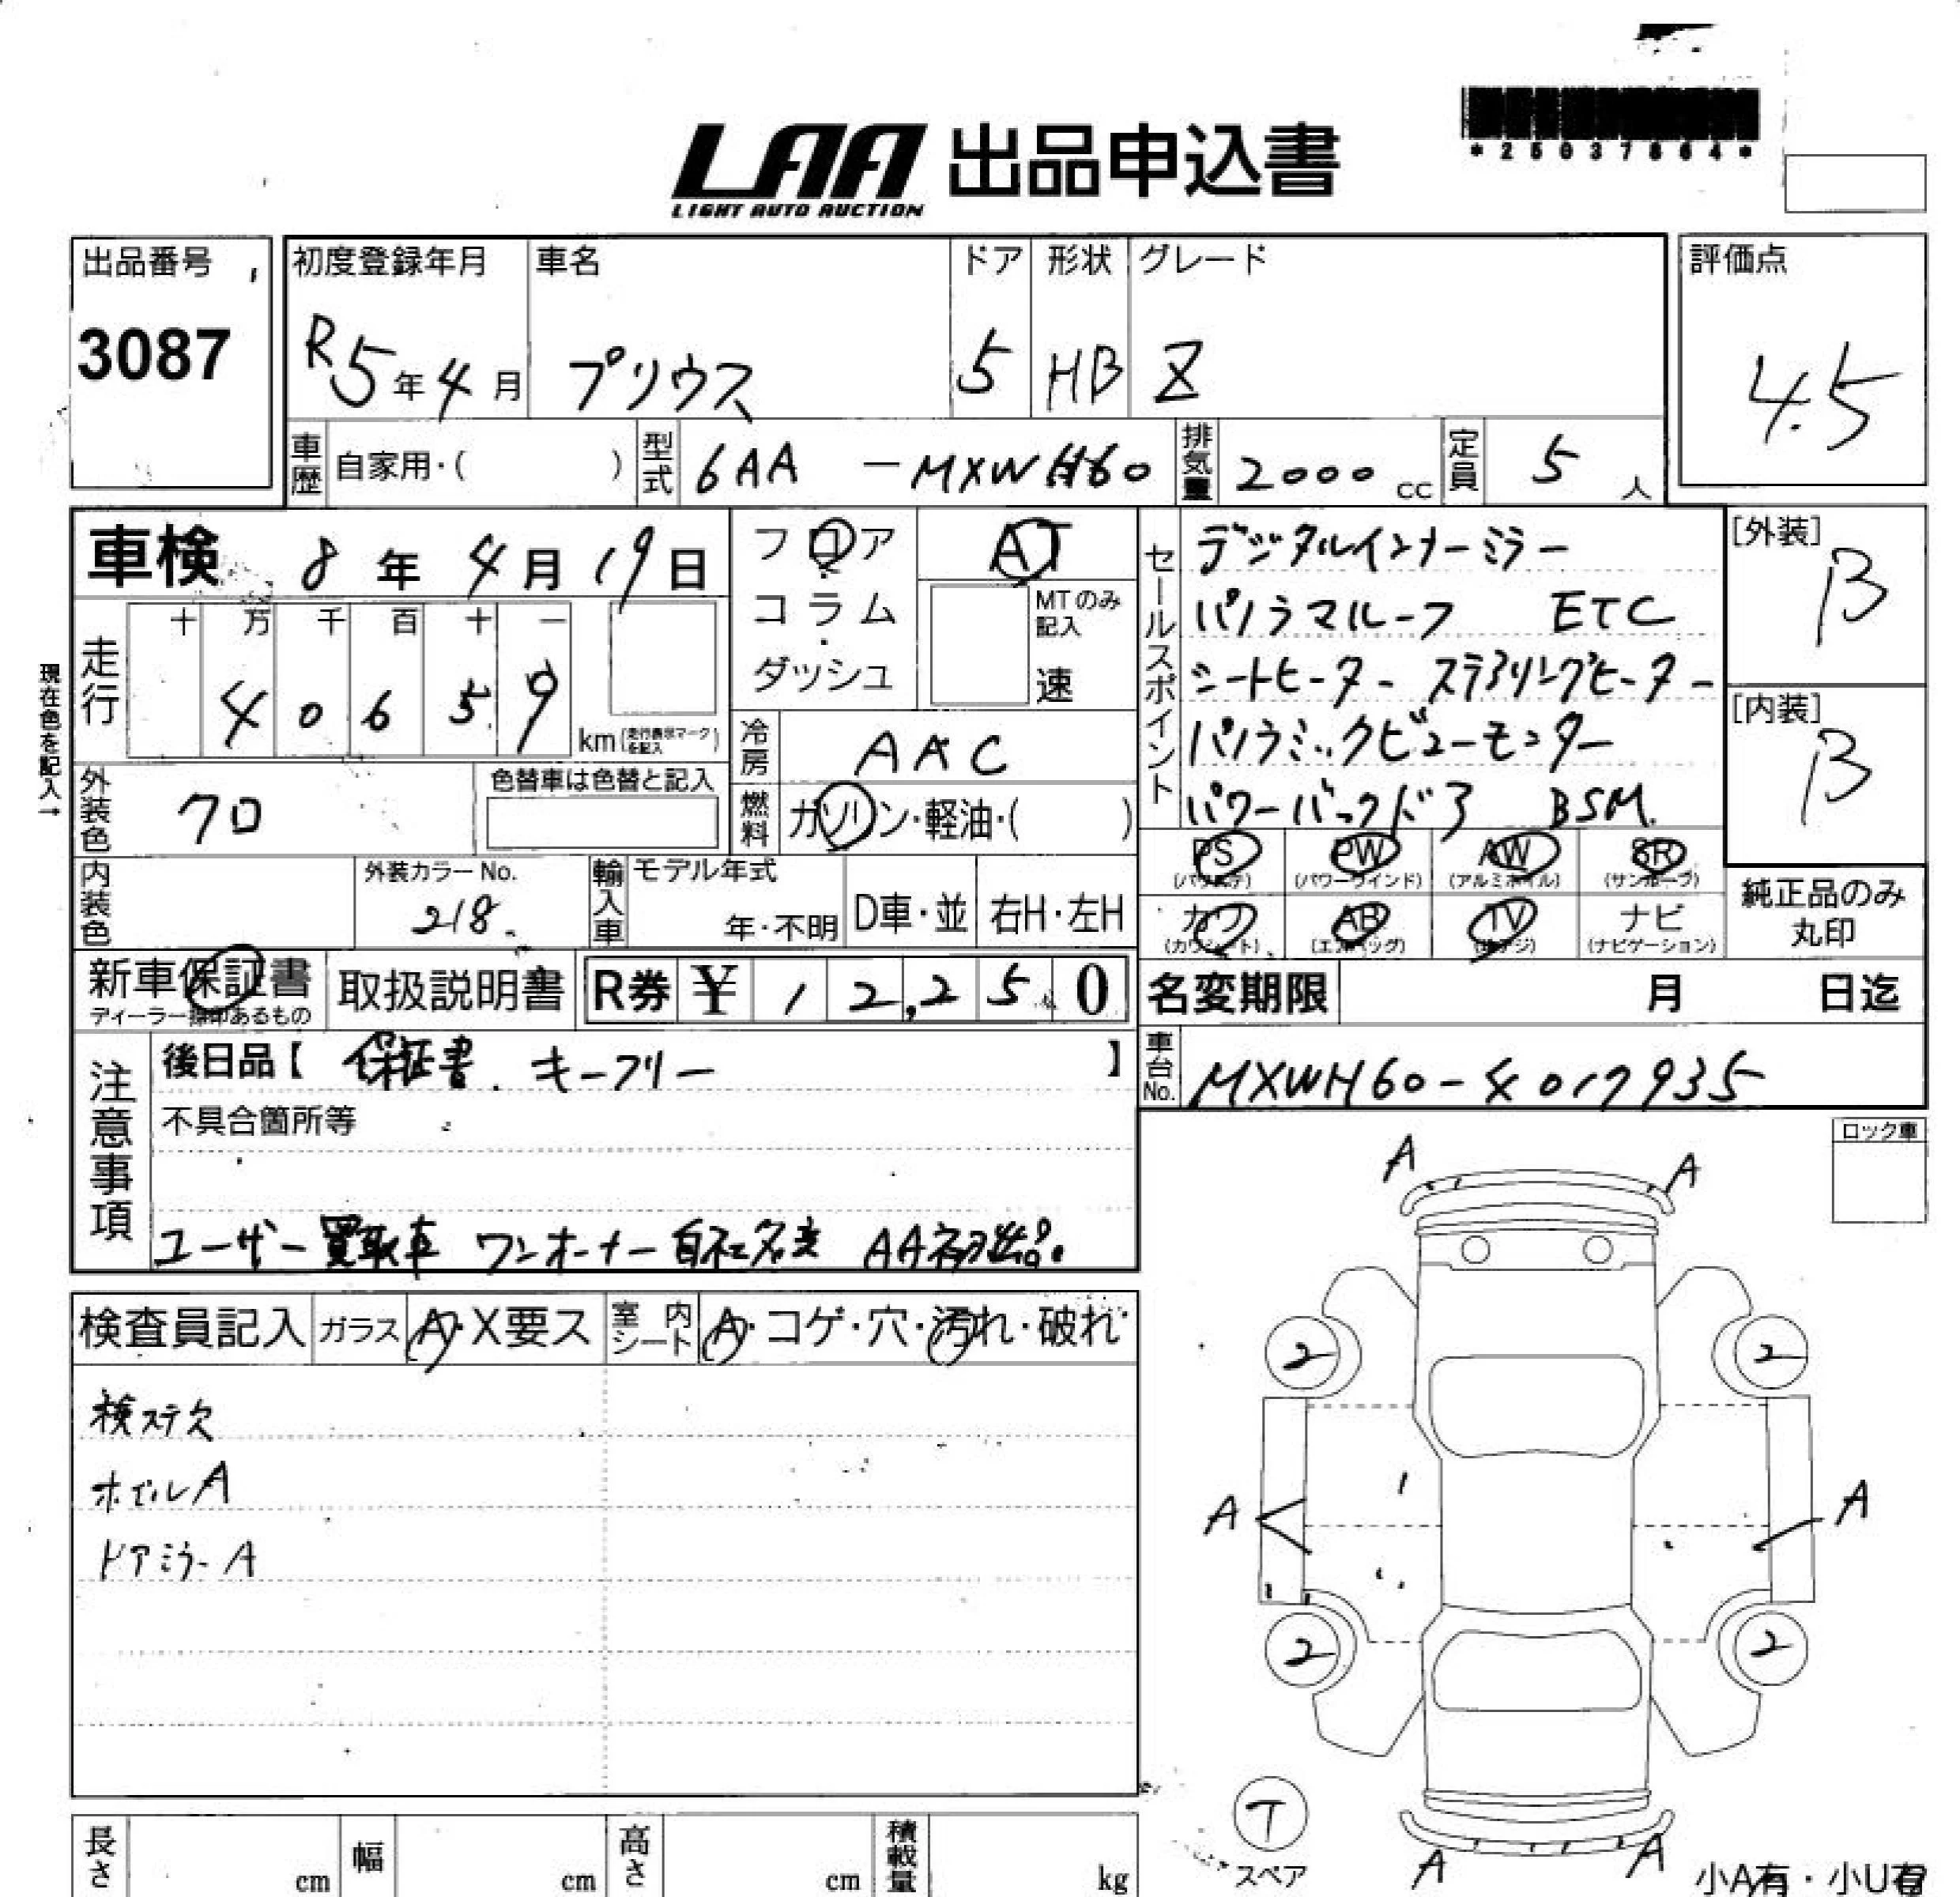 LAA 出品申込書
LIGHT AUTO AUCTION
出品番号
3087
初度登録年月
R5年4月
車名
プリウス
ドア
5
形状
HB
グレード
Z
評価点
4.5
車歴 自家用・( )
型式 6AA -MXWH60
排気量 2000 cc
定員 5 人
車検 8年4月19日
フロア
コラム
ダッシュ
AT
MTのみ記入
速
セールスポイント
デジタルインナーミラー
パノラマルーフ ETC
シートヒーター ステアリングヒーター
パノラミックビューモニター
パワーバックドア BSM
[外装]
B
[内装]
B
現在色を記入→
走行
十 万 千 百 十 一
4 0 6 5 9
km (走行表示マークを記入)
冷房 AAC
外装色 クロ
色替車は色替と記入
燃料 ガソリン・軽油・( )
内装色
外装カラーNo.
218
輸入車
モデル年式
年・不明
D車・並
右H・左H
PS (パワステ)
PW (パワーウインド)
AW (アルミホイル)
SR (サンルーフ)
カワ (カワシート)
AB (エアバッグ)
TV
ナビ (ナビゲーション)
純正品のみ
丸印
新車保証書
ディーラー捺印あるもの
取扱説明書
R券 ¥ 12,250
名変期限 月 日迄
注意事項
後日品【 保証書. キーフリー 】
車台No. MXWH60-4017935
不具合箇所等
ユーザー買取車 ワンオーナー 自社名変 AA初出品。
ロック車
検査員記入
ガラス A・X要ス
室内シート A・コゲ・穴・汚れ・破れ
検ステ欠
ホイルA
ドアミラーA
A
A
2
2
A
A
2
2
T
スペア
A
A
小A有・小U有
長さ cm
幅 cm
高さ cm
積載量 kg